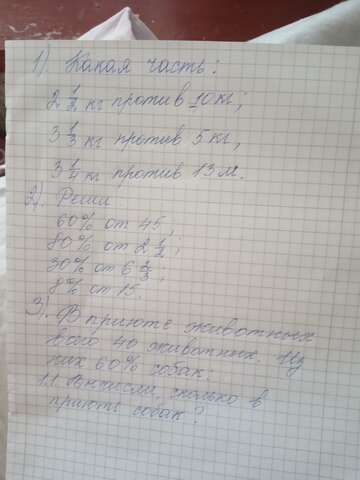 1). Какая часть:
2 1/2 кг против 10 кг;
3 1/3 кг против 5 кг,
3 1/4 кг против 13 м.
2). Реши
60% от 45,
80% от 2 1/2;
30% от 6 2/3;
8% от 15.
3). В приюте животных
всего 40 животных. Из
них 60% собак.
1.1. Вычисли, сколько в
приюте собак?